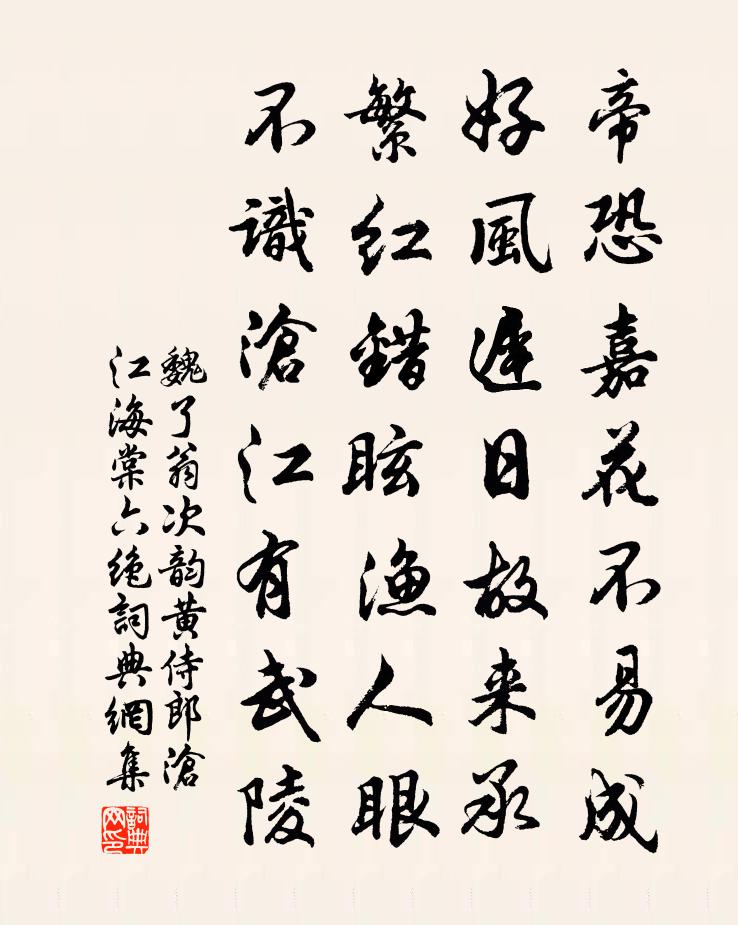 帝恐嘉花不易成
好風遲日故来承
繁红錯眩漁人眼
不識滄江有武陵
魏了翁次韵黄侍郎滄
江海棠六绝詞典網集
詞典
网印